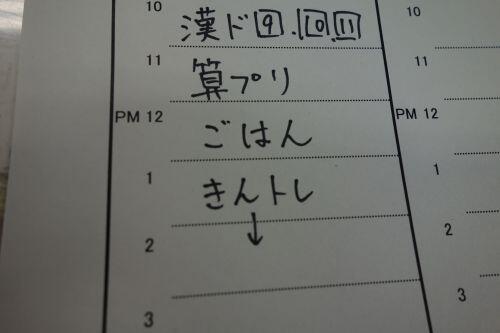 10 漢ド 9.10.11 10
11 算プリ 11
PM 12 ごはん PM 12
1 きんトレ 1
2 ↓ 2
3 3